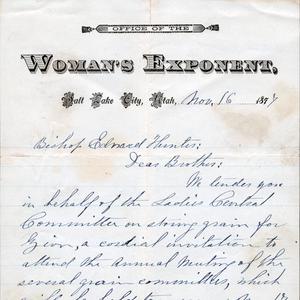 OFFICE OF THE
WOMAN'S EXPONENT,
Salt Lake City, Utah, Nov, 16 1877
Bishop Edward Hunter:
Dear Brother:
We tender you
in behalf of the Ladies Central
Committee on storing grain for
Zion, a cordial invitation to
attend the Annual Meeting of the
several grain committees, which
will be held